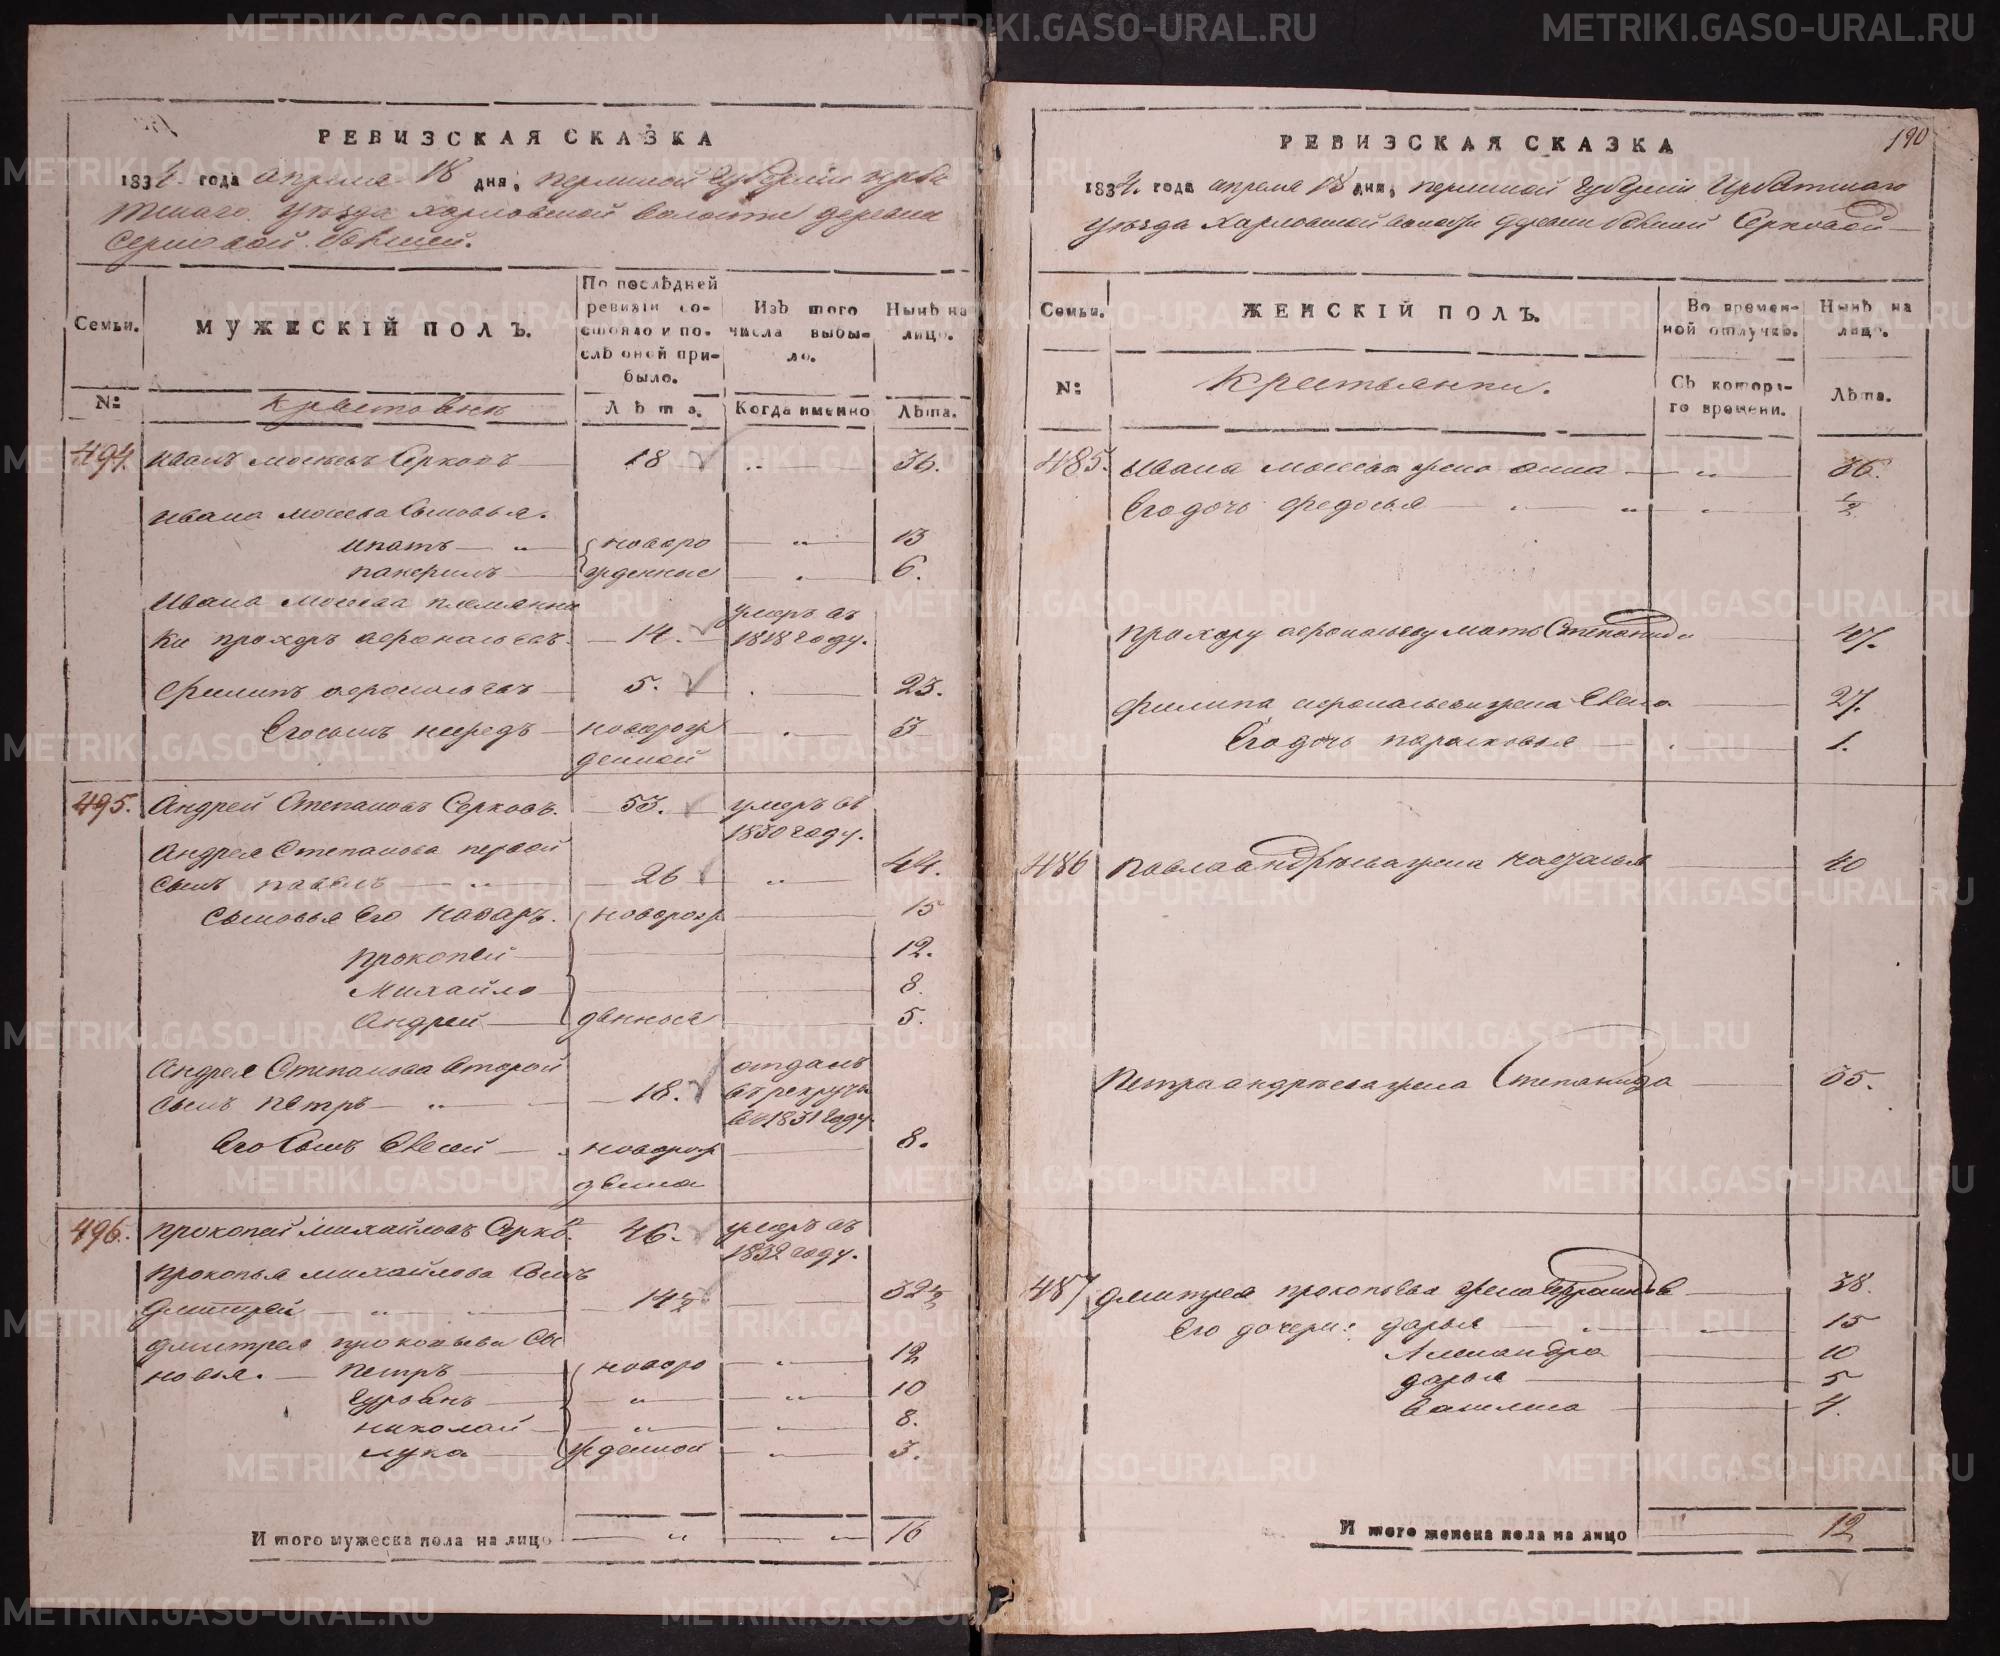 РЕВИЗСКАЯ СКАЗКА
1834 года апреля 18 дня, пермской губернии ирби
тскаго уѣзда харловской волости деревни
серковой большей.
Семьи.
МУЖЕСКІЙ ПОЛЪ.
По послѣдней ревизіи состояло и послѣ оной прибыло.
Изъ того числа выбыло.
Нынѣ на лицо.
№:
крестьяне
Лѣта.
Когда именно
Лѣта.
494. иванъ мосѣевъ Серковъ 18 36.
ивана мосеева Сыновья.
ипатъ новоро 13
панкрилъ жденные 6.
ивана мосеева племянни
ки прохоръ 14. умеръ въ 1818 году.
Филипъ 5. 23.
Его сынъ новорож 3
денной
495. Андрей Степановъ Серковъ. 53. умеръ въ
1830 году.
Андрея Степанова первой
сынъ павелъ 26 44.
Сыновья Его Назаръ. новорож 15
прокопей 12.
Михайло 8.
Андрей денныя 5.
Андрея Степанова второй
сынъ петръ 18. отданъ
въ рекруты
въ 1831 году
Его Сынъ Евсей новорож 8.
дена
496. прокопей михайловъ Серко. 46. умеръ въ
1832 году.
прокопья михайлова Сынъ
дмитрей 14½ 32½
дмитрея прокопьева Сы
новья. Петръ новоро 12
10
николай 8.
лука жденной 3.
Итого мужеска пола на лицо 16
190
РЕВИЗСКАЯ СКАЗКА
1834 года апреля 18 дня, пермской губерніи Ирбитскаго
уѣзда харловской волости деревни большой Серковой
Семьи.
ЖЕНСКІЙ ПОЛЪ.
Во временной отлучкѣ.
Нынѣ на лицо.
№:
Крестьянки.
Съ которого времени.
Лѣта.
485. ивана мосеева жена анна 36.
Его дочь федосья ½
прохору мать Степанида 47.
филипа жена 27.
Его дочь парасковья 1.
486 Павла андрѣева жена 40
Петра андрѣева жена Степанида 35.
487 дмитрея прокопьева жена 38.
Его дочери: дарья 15
10
дарья 5
4.
Итого женска пола на лицо 12
METRIKI.GASO-URAL.RU